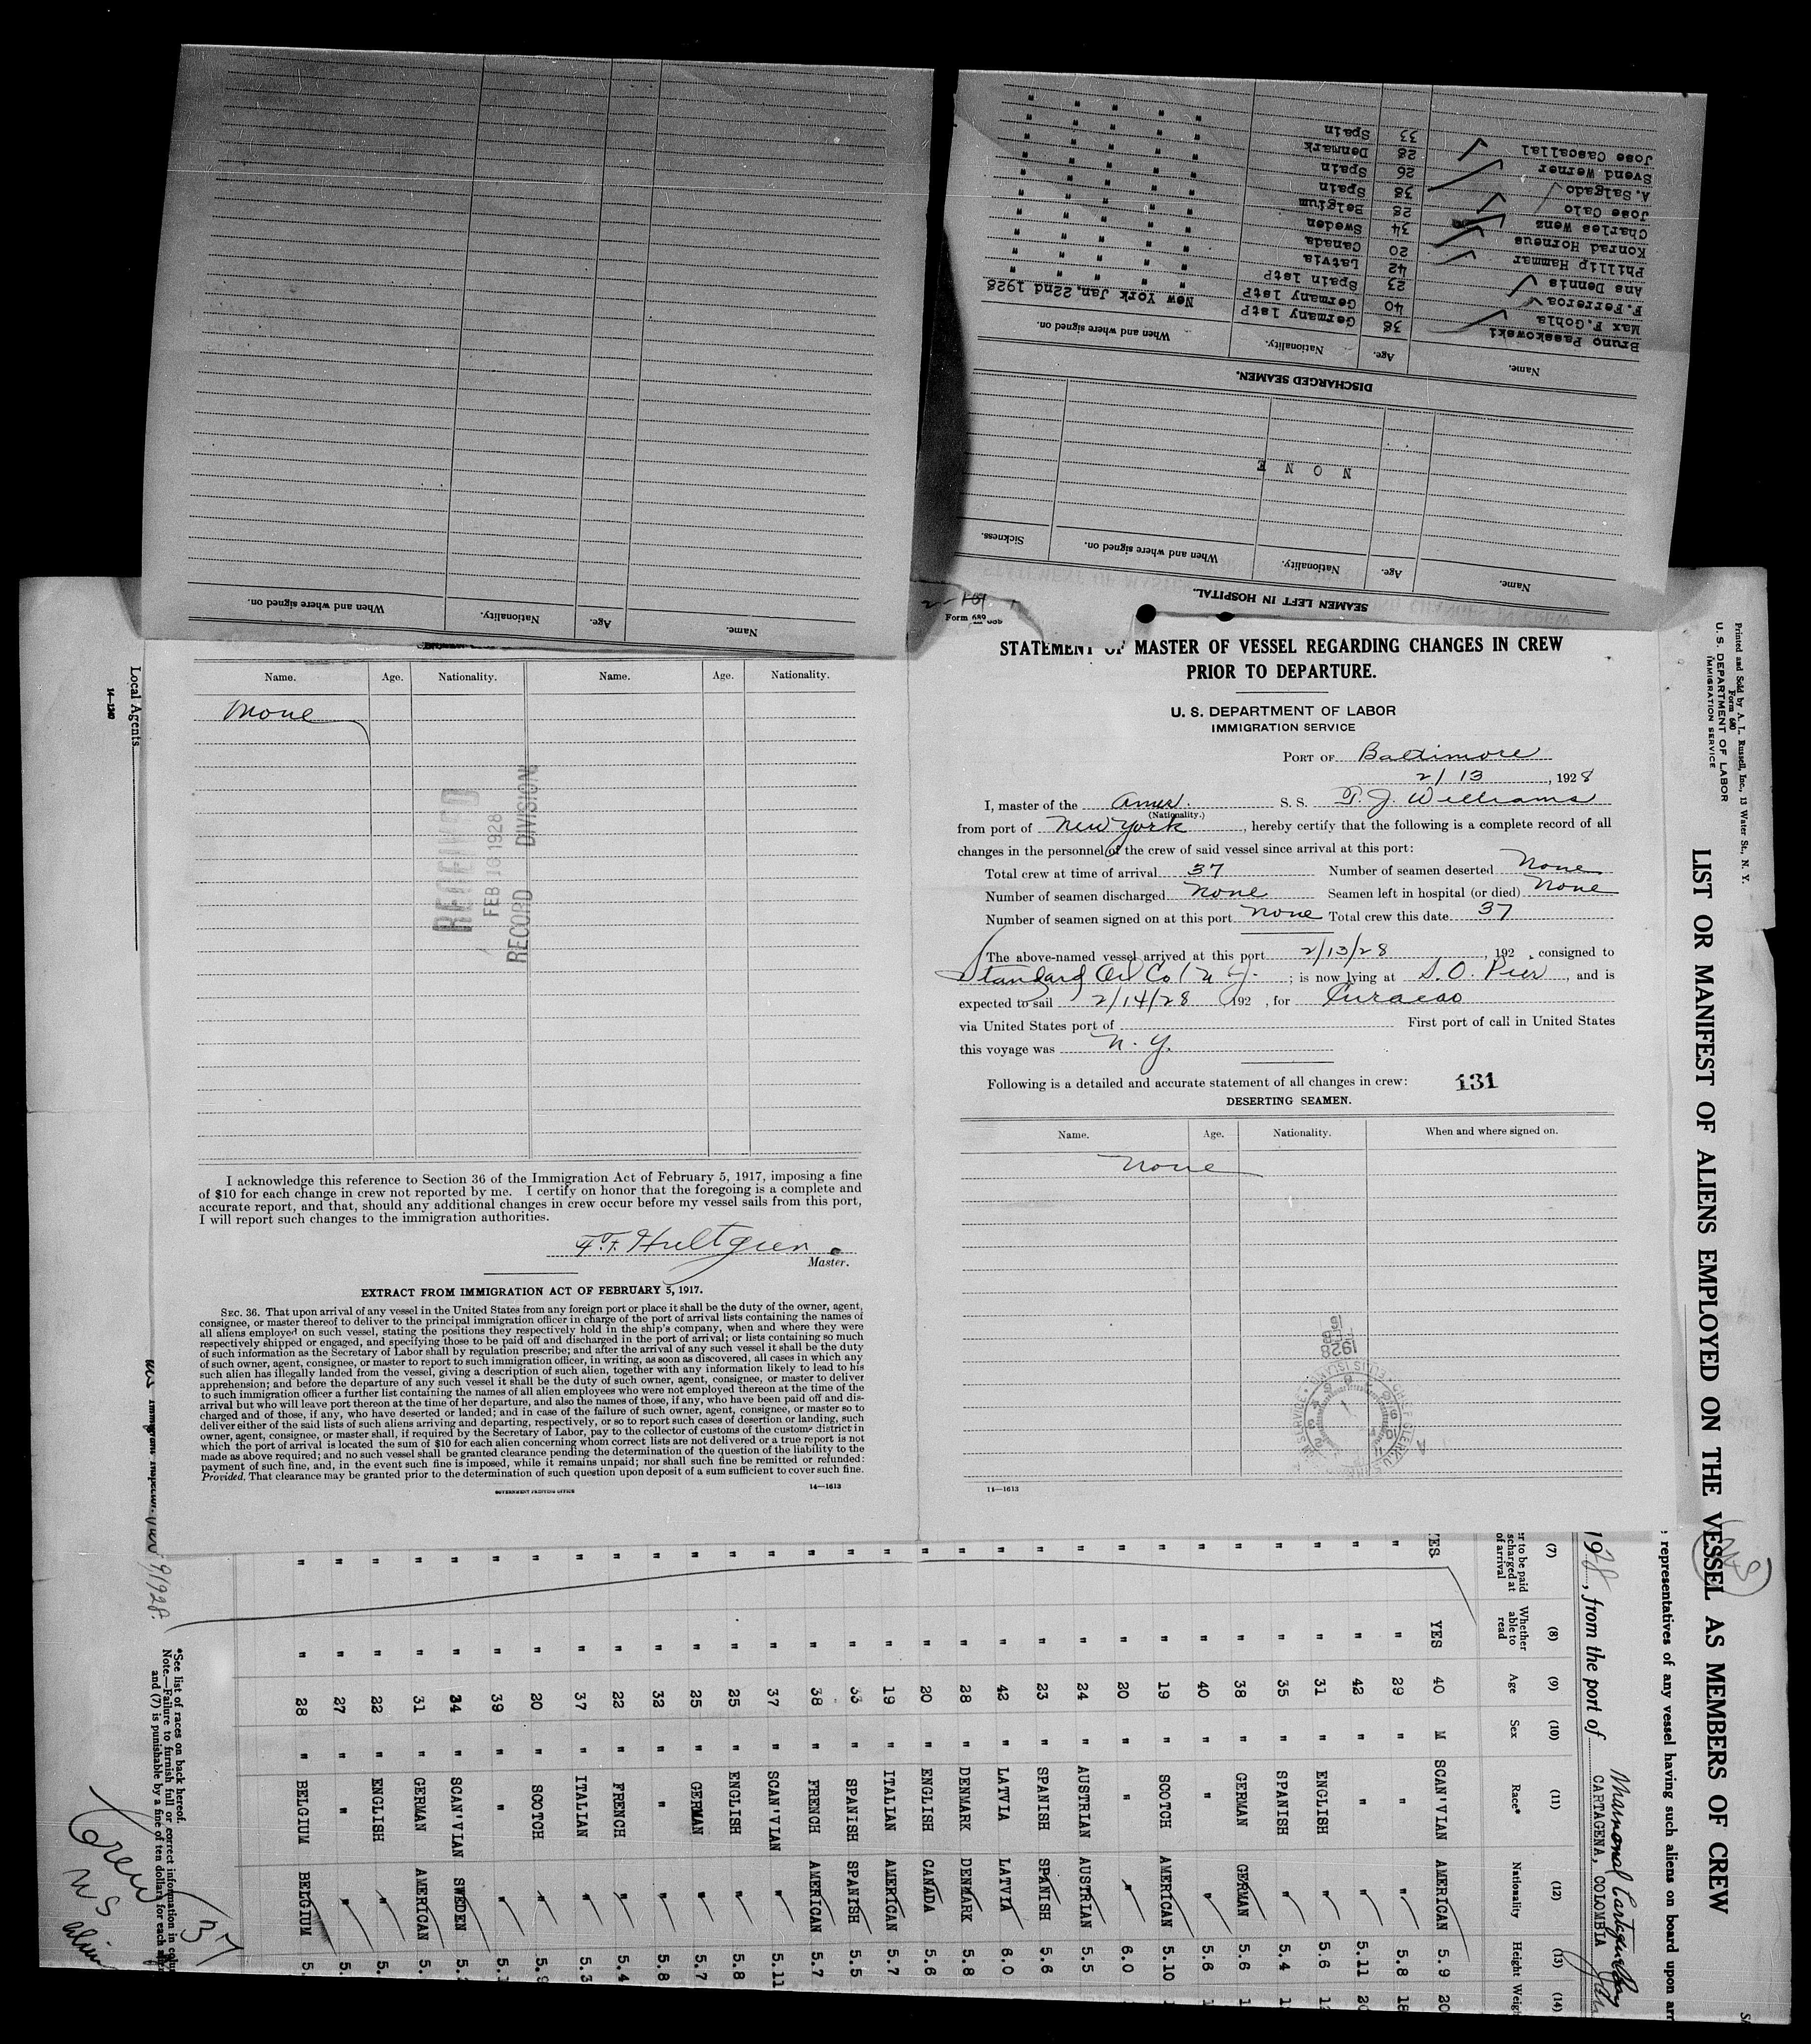 When and where signed on.
Nationality.
Age.
Name.
Jose Cascallal 33 Spain " " " " "
Svend Werner 28 Denmark " " " " "
A. Salgado 26 Spain " " " " "
Jose Calo 38 Spain " " " " "
Charles Wens 28 Belgium " " " " "
Konrad Horneus 34 Sweden " " " " "
Phillip Hammar 20 Canada " " " " "
Ans Dennis 42 Latvia " " " " "
F. Ferreroa 23 Spain 1stP " " " " "
Max F. Gohla 40 Germany 1stP " " " " "
Bruno Passkowski 38 Germany 1stP New York Jan. 22nd 1928
Name. Age. Nationality. When and where signed on.
DISCHARGED SEAMEN.
N O N E
Name. Age. Nationality. When and where signed on. Sickness.
SEAMEN LEFT IN HOSPITAL.
Local Agents
14—1240
Name. Age. Nationality. Name. Age. Nationality.
None
RECEIVED
FEB 16 1928
RECORD DIVISION
I acknowledge this reference to Section 36 of the Immigration Act of February 5, 1917, imposing a fine
of $10 for each change in crew not reported by me. I certify on honor that the foregoing is a complete and
accurate report, and that, should any additional changes in crew occur before my vessel sails from this port,
I will report such changes to the immigration authorities.
F. F. Hultgren
Master.
EXTRACT FROM IMMIGRATION ACT OF FEBRUARY 5, 1917.
SEC. 36. That upon arrival of any vessel in the United States from any foreign port or place it shall be the duty of the owner, agent,
consignee, or master thereof to deliver to the principal immigration officer in charge of the port of arrival lists containing the names of
all aliens employed on such vessel, stating the positions they respectively hold in the ship's company, when and where they were
respectively shipped or engaged, and specifying those to be paid off and discharged in the port of arrival; or lists containing so much
of such information as the Secretary of Labor shall by regulation prescribe; and after the arrival of any such vessel it shall be the duty
of such owner, agent, consignee, or master to report to such immigration officer, in writing, as soon as discovered, all cases in which any
such alien has illegally landed from the vessel, giving a description of such alien, together with any information likely to lead to his
apprehension; and before the departure of any such vessel it shall be the duty of such owner, agent, consignee, or master to deliver
to such immigration officer a further list containing the names of all alien employees who were not employed thereon at the time of the
arrival but who will leave port thereon at the time of her departure, and also the names of those, if any, who have been paid off and dis-
charged and of those, if any, who have deserted or landed; and in case of the failure of such owner, agent, consignee, or master so to
deliver either of the said lists of such aliens arriving and departing, respectively, or so to report such cases of desertion or landing, such
owner, agent, consignee, or master shall, if required by the Secretary of Labor, pay to the collector of customs of the customs district in
which the port of arrival is located the sum of $10 for each alien concerning whom correct lists are not delivered or a true report is not
made as above required; and no such vessel shall be granted clearance pending the determination of the question of the liability to the
payment of such fine, and, in the event such fine is imposed, while it remains unpaid; nor shall such fine be remitted or refunded:
Provided, That clearance may be granted prior to the determination of such question upon deposit of a sum sufficient to cover such fine.
GOVERNMENT PRINTING OFFICE 14—1613
Form 689
STATEMENT OF MASTER OF VESSEL REGARDING CHANGES IN CREW
PRIOR TO DEPARTURE.
U. S. DEPARTMENT OF LABOR
IMMIGRATION SERVICE
PORT OF Baltimore
2/13, 1928
I, master of the Amer. S. S. T. J. Williams
(Nationality.)
from port of New York, hereby certify that the following is a complete record of all
changes in the personnel of the crew of said vessel since arrival at this port:
Total crew at time of arrival 37 Number of seamen deserted None
Number of seamen discharged None Seamen left in hospital (or died) None
Number of seamen signed on at this port None Total crew this date 37
The above-named vessel arrived at this port 2/13/28, 192 , consigned to
Standard Oil Co (N. J. ; is now lying at S. O. Pier, and is
expected to sail 2/14/28 192 , for Curacao
via United States port of First port of call in United States
this voyage was N. Y.
Following is a detailed and accurate statement of all changes in crew: 131
DESERTING SEAMEN.
Name. Age. Nationality. When and where signed on.
None
1928
14—1613
Printed and Sold by A. L. Russell, Inc., 13 Water St., N. Y.
Form 680
U. S. DEPARTMENT OF LABOR
IMMIGRATION SERVICE
LIST OR MANIFEST OF ALIENS EMPLOYED ON THE VESSEL AS MEMBERS OF CREW
representatives of any vessel having such aliens on board upon arr
1928, from the port of CARTAGENA, COLOMBIA
(7) (8) (9) (10) (11) (12) (13) (14)
er to be paid scharged at of arrival Whether able to read Age Sex Race* Nationality Height Weigh
YES YES 40 M SCAN'VIAN AMERICAN 5.9 20
" " 29 " " " 5.8 18
" " 42 " " " 5.11 20
" " 31 " ENGLISH " 5.6 12
" " 35 " SPANISH " 5.4 1
" " 38 " GERMAN GERMAN 5.6 1
" " 40 " " " 5.6 1
" " 19 " SCOTCH AMERICAN 5.10
" " 20 " " " 6.0
" " 24 " AUSTRIAN AUSTRIAN 5.5
" " 23 " SPANISH SPANISH 5.6
" " 42 " LATVIA LATVIA 6.0
" " 28 " DENMARK DENMARK 5.8
" " 20 " ENGLISH CANADA 5.6
" " 19 " ITALIAN AMERICAN 5.7
" " 33 " SPANISH SPANISH 5.5
" " 38 " FRENCH AMERICAN 5.7
" " 37 " SCAN'VIAN " 5.11
" " 25 " ENGLISH " 5.8
" " 25 " GERMAN " 5.7
" " 32 " " " 5.8
" " 22 " FRENCH " 5.4
" " 37 " ITALIAN " 5.3
" " 20 " SCOTCH " 5.9
" " 39 " " " 5.
" " 34 " SCAN'VIAN SWEDEN 5.
" " 31 " GERMAN AMERICAN 5.
" " 22 " ENGLISH " 5.
" " 27 " " " 5.
" " 28 " BELGIUM BELGIUM 5.
*See list of races on back hereof.
Note.—Failure to furnish full or correct information in colu
and (7) is punishable by a fine of ten dollars for each
Immigrant Inspector.
Crew 37